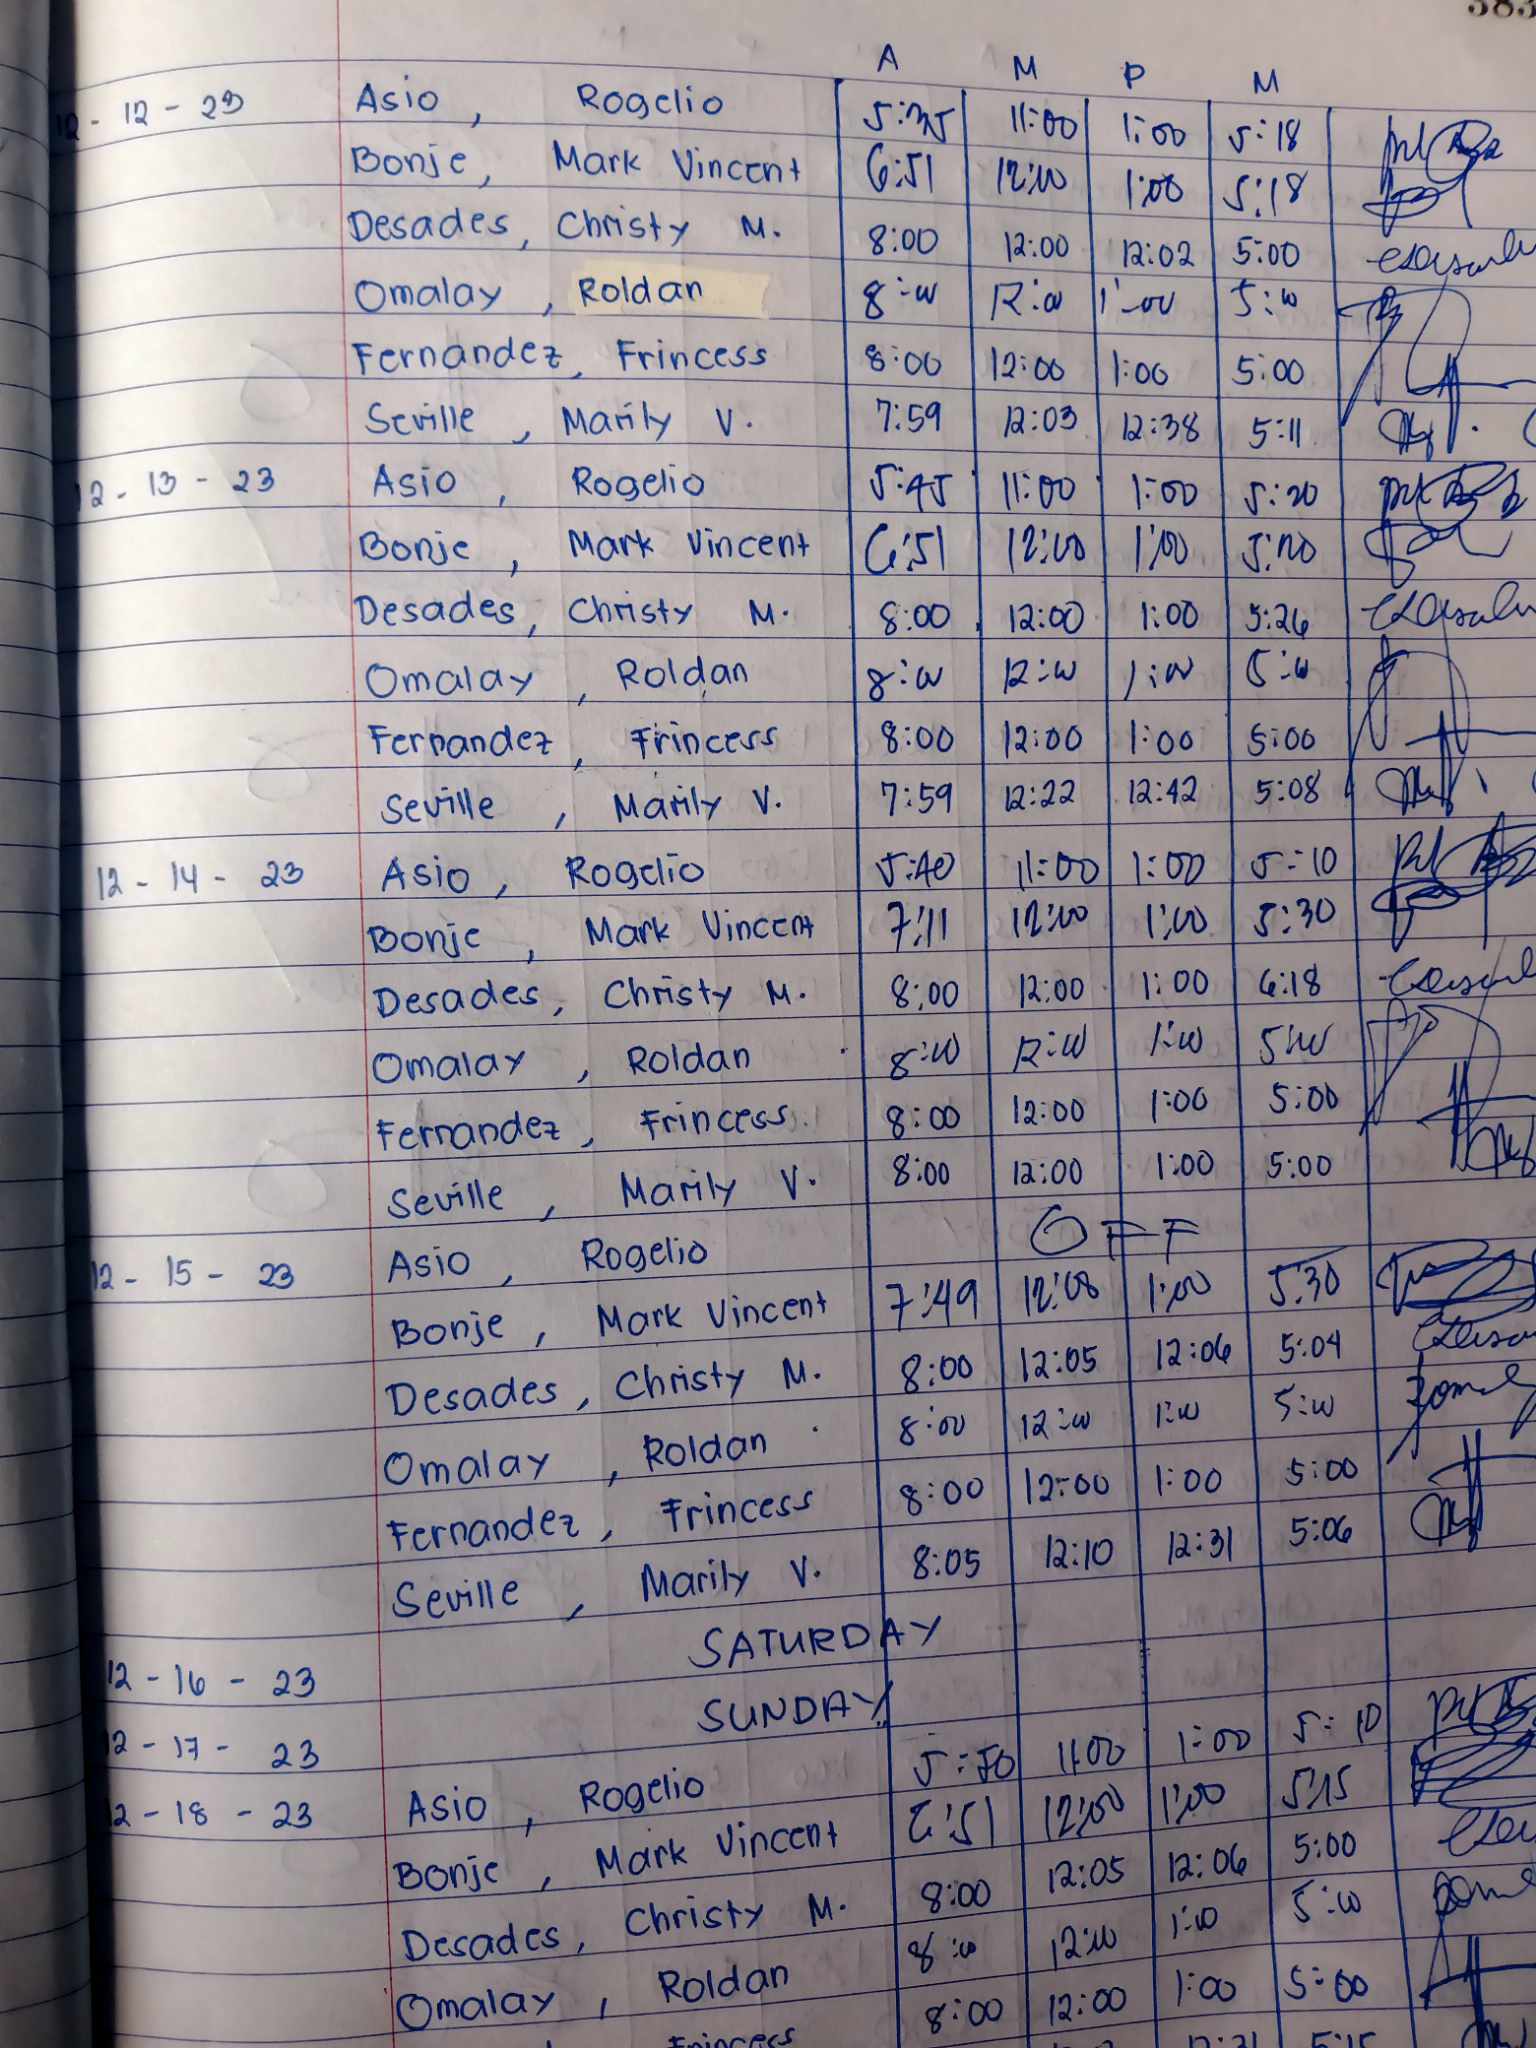 383
A M P M
12-12-23 Asio, Rogelio 5:35 11:00 1:00 5:18
Bonje, Mark Vincent 6:51 12:00 1:00 5:18
Desades, Christy M. 8:00 12:00 12:02 5:00
Omalay, Roldan 8:00 12:00 1:00 5:00
Fernandez, Frincess 8:00 12:00 1:00 5:00
Seville, Marily V. 7:59 12:03 12:38 5:11
12-13-23 Asio, Rogelio 5:45 11:00 1:00 5:20
Bonje, Mark Vincent 6:51 12:00 1:00 5:20
Desades, Christy M. 8:00 12:00 1:00 5:26
Omalay, Roldan 8:00 12:00 1:00 5:00
Fernandez, Frincess 8:00 12:00 1:00 5:00
Seville, Marily V. 7:59 12:22 12:42 5:08
12-14-23 Asio, Rogelio 5:40 11:00 1:00 5:10
Bonje, Mark Vincent 7:11 12:00 1:00 5:30
Desades, Christy M. 8:00 12:00 1:00 6:18
Omalay, Roldan 8:00 12:00 1:00 5:00
Fernandez, Frincess 8:00 12:00 1:00 5:00
Seville, Marily V. 8:00 12:00 1:00 5:00
12-15-23 Asio, Rogelio OFF
Bonje, Mark Vincent 7:49 12:08 1:00 5:30
Desades, Christy M. 8:00 12:05 12:06 5:04
Omalay, Roldan 8:00 12:00 1:00 5:00
Fernandez, Frincess 8:00 12:00 1:00 5:00
Seville, Marily V. 8:05 12:10 12:31 5:06
12-16-23 SATURDAY
12-17-23 SUNDAY
12-18-23 Asio, Rogelio 5:50 11:00 1:00 5:10
Bonje, Mark Vincent 6:51 12:00 1:00 5:15
Desades, Christy M. 8:00 12:05 12:06 5:00
Omalay, Roldan 8:00 12:00 1:00 5:00
Frincess 8:00 12:00 1:00 5:00
12:31 5:15